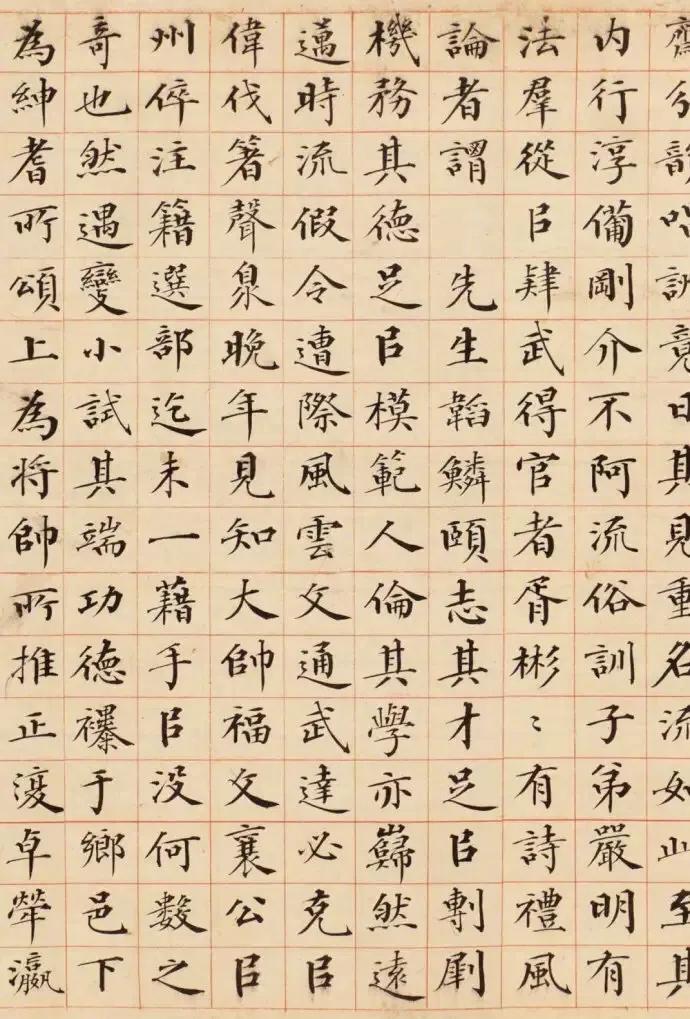 齋分韻竟日其見重名流如此至其
内行淳備剛介不阿流俗訓子弟嚴明有
法羣從㠯肄武得官者胥彬〻有詩禮風
論者謂 先生韜鱗頤志其才足㠯剸劇
機務其德足㠯模範人倫其學亦巋然遠
邁時流假令遭際風雲文通武達必克㠯
偉伐箸聲泉晚年見知大帥福文襄公㠯
州倅注籍選部迄未一藉手㠯没何數之
奇也然遇變小試其端功德襮于鄉邑下
為紳耆所頌上為將帥所推正復卓犖瀛